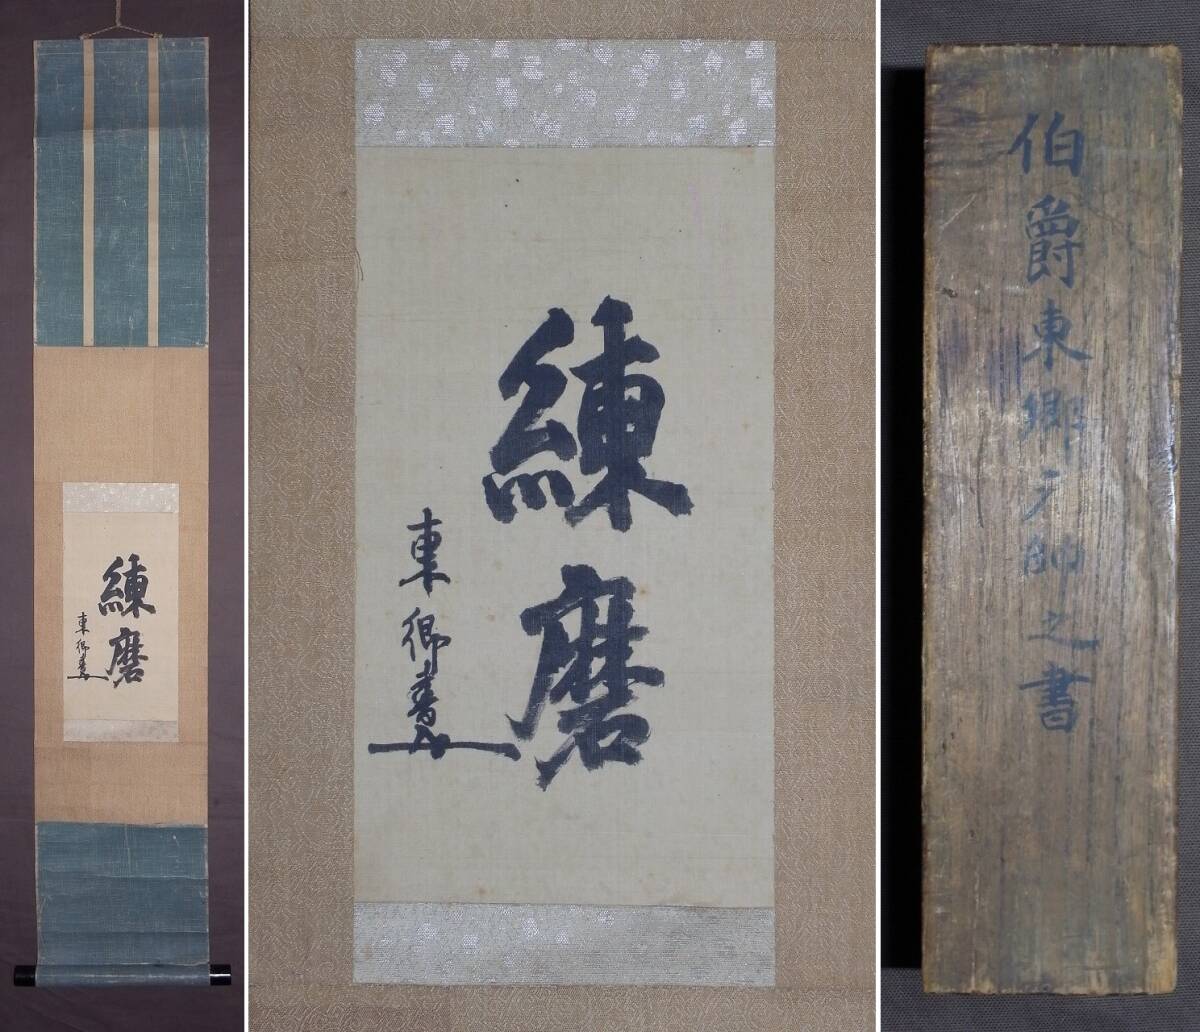 練磨
東郷書
練磨
東郷書
伯爵東郷元帥之書